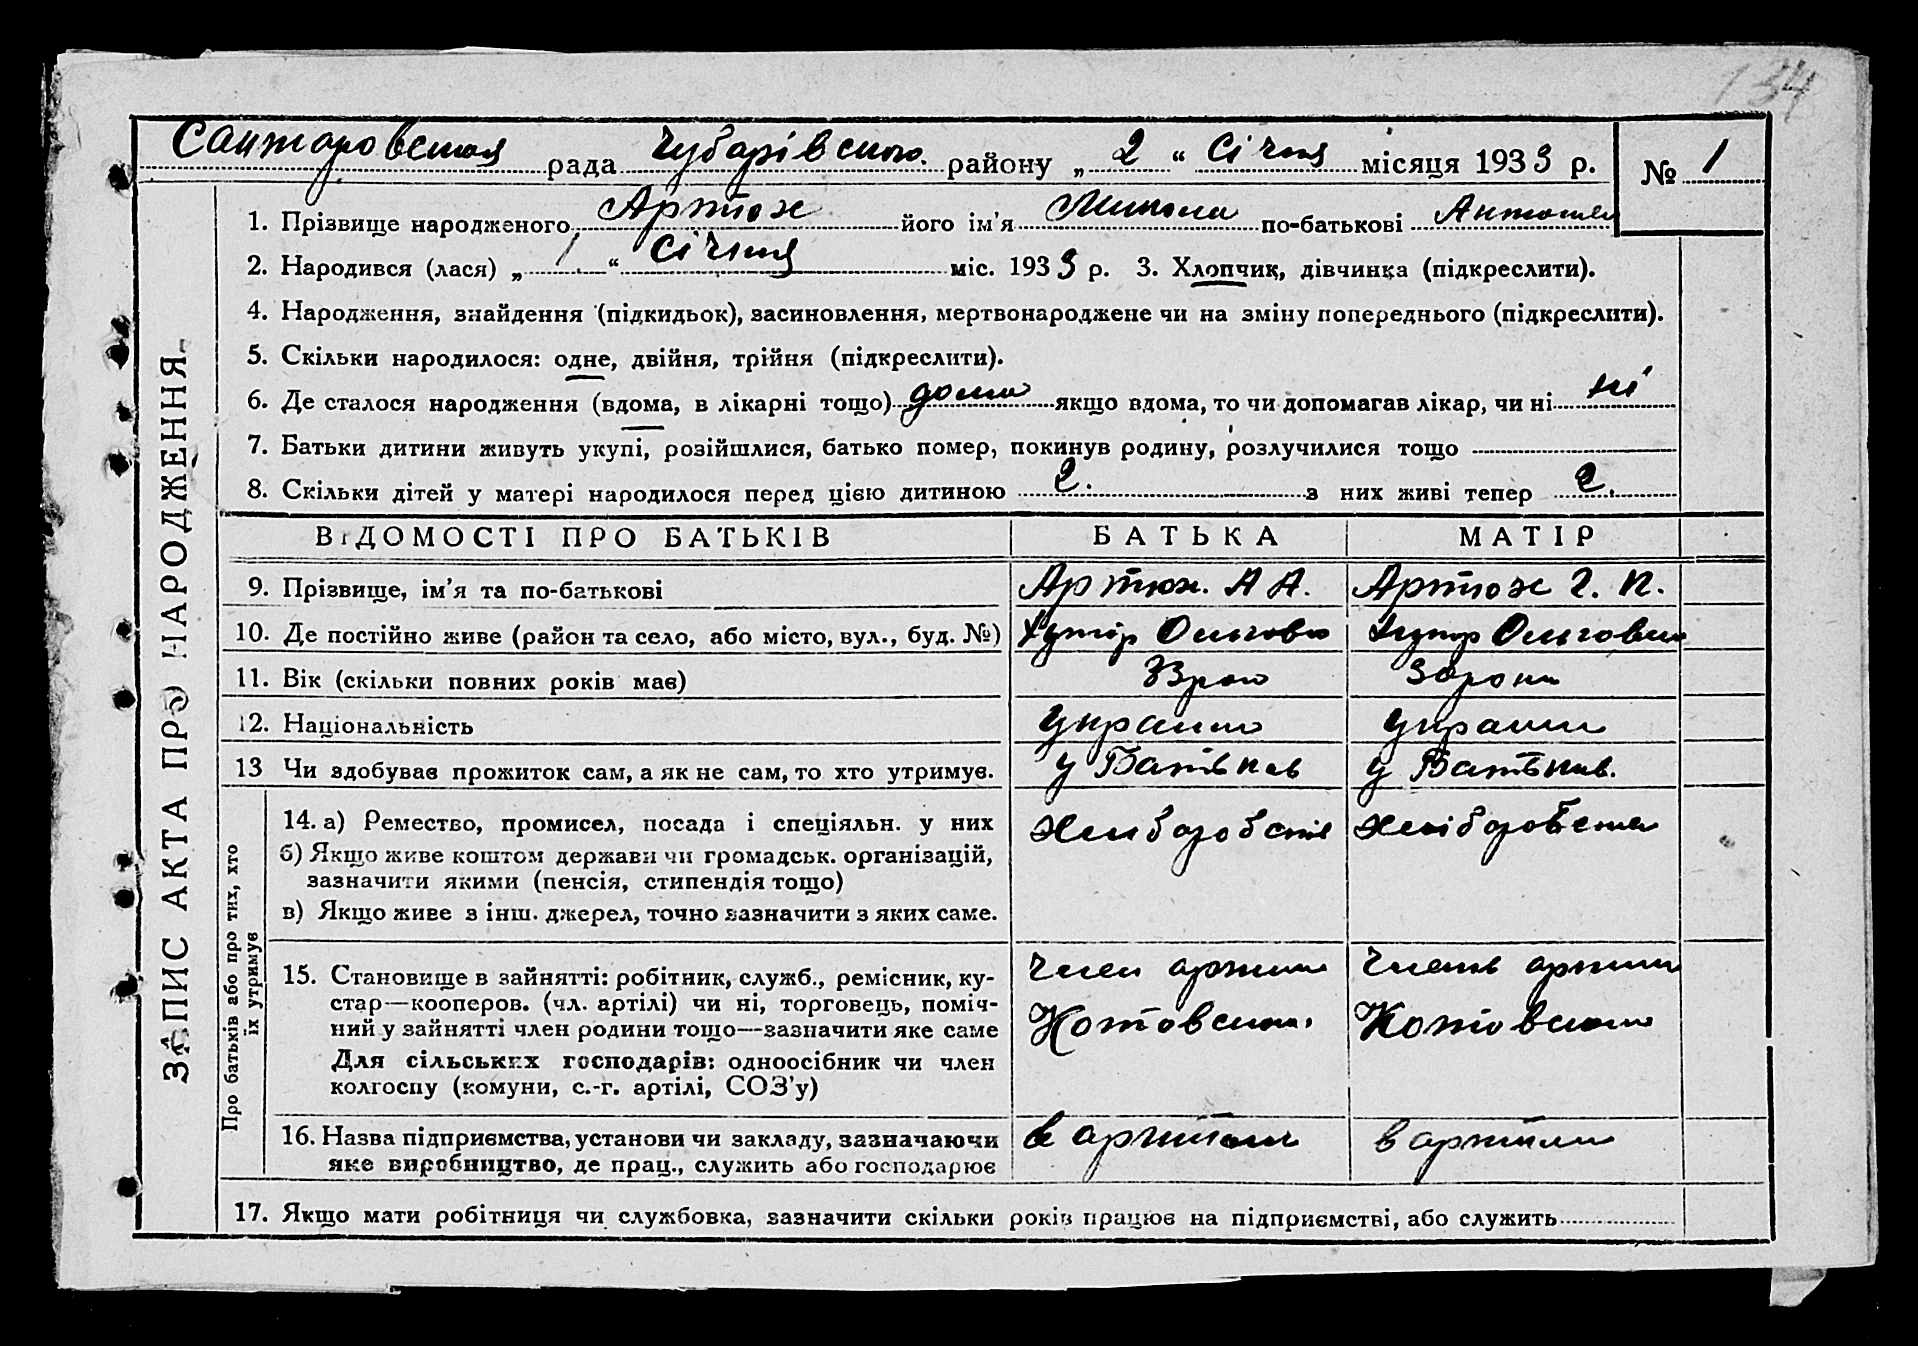 134
рада Чубарівського району „ 2 “ Січня місяця 1933 р. № 1
1. Прізвище народженого Артюх його ім'я Микола по-батькові
2. Народився (лася) „ 1 “ Січня міс. 1933 р. 3. Хлопчик, дівчинка (підкреслити).
4. Народження, знайдення (підкидьок), засиновлення, мертвонароджене чи на зміну попереднього (підкреслити).
5. Скільки народилося: одне, двійня, трійня (підкреслити).
6. Де сталося народження (вдома, в лікарні тощо) дома якщо вдома, то чи допомагав лікар, чи ні ні
7. Батьки дитини живуть укупі, розійшлися, батько помер, покинув родину, розлучилися тощо
8. Скільки дітей у матері народилося перед цією дитиною 2. з них живі тепер 2.
ВІДОМОСТІ ПРО БАТЬКІВ БАТЬКА МАТІР
9. Прізвище, ім'я та по-батькові Артюх. А А. Артюх Г. П.
10. Де постійно живе (район та село, або місто, вул., буд. №) Хутір Хутір
11. Вік (скільки повних років має)
12. Національність
13 Чи здобував прожиток сам, а як не сам, то хто утримує. у Батьків у Батьків.
ЗАПИС АКТА ПРО НАРОДЖЕННЯ
Про батьків або про тих, хто
їх утримує
14. а) Ремество, промисел, посада і спеціяльн. у них
б) Якщо живе коштом держави чи громадськ. організацій,
зазначити якими (пенсія, стипендія тощо)
в) Якщо живе з інш. джерел, точно зазначити з яких саме.
15. Становище в зайнятті: робітник, служб., ремісник, ку-
стар—кооперов. (чл. артілі) чи ні, торговець, поміч-
ний у зайнятті член родини тощо—зазначити яке саме
Для сільських господарів: одноосібник чи член
колгоспу (комуни, с.-г. артілі, СОЗ'у)
16. Назва підприємства, установи чи закладу, зазначаючи
яке виробництво, де прац., служить або господарює
17. Якщо мати робітниця чи службовка, зазначити скільки років працює на підприємстві, або служить